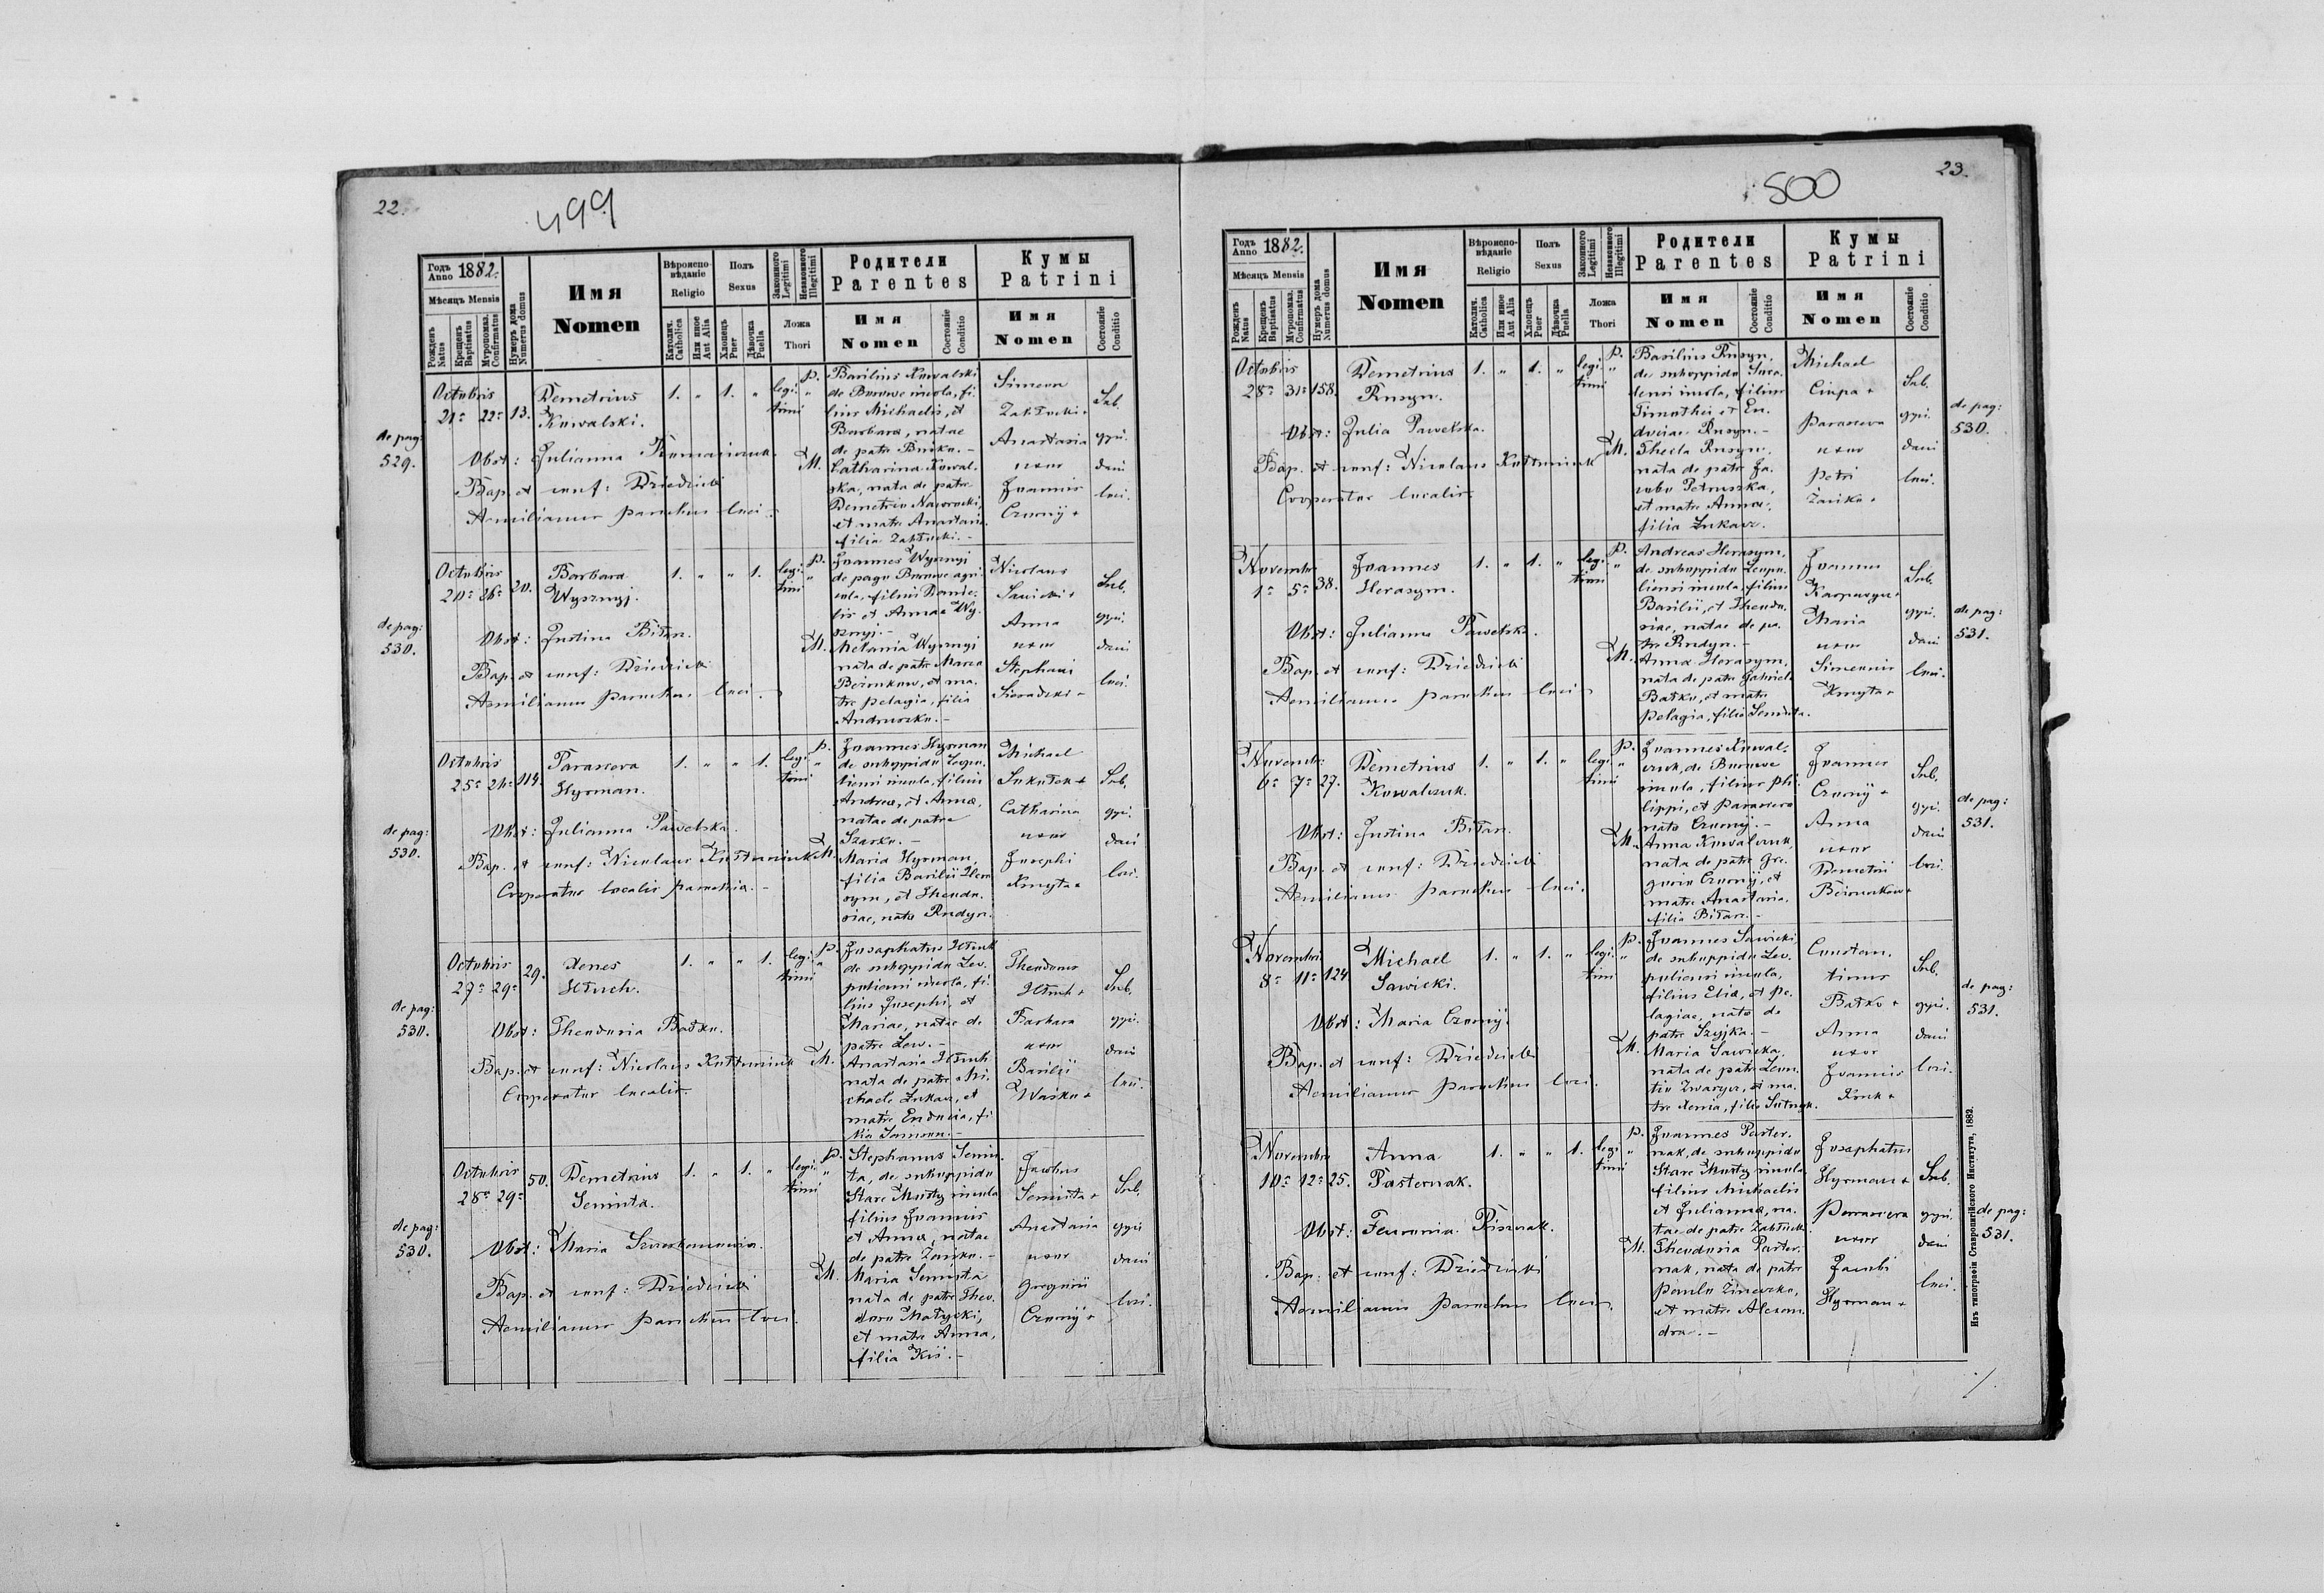 22.
499
Годъ Anno 1882.
Мѣсяцъ Mensis
Рожденъ Natus
Крещенъ Baptisatus
Мѵропомаз. Confirmatus
Нумеръ дома Numerus domus
Имя
Nomen
Вѣроисповѣданіе
Religio
Католич. Catholica
Или иное Aut Alia
Полъ
Sexus
Хлопецъ Puer
Дѣвочка Puella
Законного Legitimi
Незаконного Illegitimi
Ложа
Thori
Родители
Parentes
Имя
Nomen
Состояніе Conditio
Кумы
Patrini
Имя
Nomen
Состояніе Conditio
de pag:
529.
Octobris
21= 22= 13.
Demetrius
Kowalski.
1. „ 1. „
legitimi „
Obst: Julianna
Bap. et conf: Dziedzicki
Aemilianus parochus loci.
P. Basilius Kowalski
de Borowe incola, fi-
lius Michaelis, et
Barbara, natae
de patre
M. Catharina Kowal-
ska, nata de patre
Demetrio Naworocki,
et matre Anastasia
filia
Simeon
Anastasia
uxor
Joannis
Czornij +
Sub.
gyii.
dani
loci.
de pag:
530.
Octobris
20= 26= 20.
Barbara
Wysznyj.
1. „ „ 1.
legitimi „
Obst: Justina Biłan.
Bap. et conf: Dziedzicki
Aemilianus parochus loci.
P. Joannes Wysznyj
de pago Borowe agri-
cola, filius Danie-
lis et Annae Wy-
sznyj.-
M. Melania Wysznyj
nata de patre Marco
et ma-
tre Pelagia, filia
Andruszko.-
Nicolaus
Sawicki +
Anna
uxor
Stephani
Sieradzki -
Sub.
gyii.
dani
loci.
de pag:
530.
Octobris
25= 24= 114.
Parasceva
Hyrman.
1. „ „ 1.
legitimi „
Obst: Julianna Pawelska.
Bap. et conf: Nicolaus
Cooperator localis parochia.-
P. Joannes Hyrman
de suboppido Leopo-
liensi incola, filius
Andrea, et Anna,
natae de patre
Szarko.-
M. Maria Hyrman,
filia Basilii Hera-
sym, et Theodo-
siae, nato Rudyn.
Michael
Catharina
uxor
Josephi
Kmyta +
Sub.
gyii.
dani
loci.
de pag:
530.
Octobris
27= 29= 29.
Xenes
1. „ „ 1.
legitimi „
Obst: Theodosia Bałko.
Bap. et conf: Nicolaus
Cooperator localis.
P. Josaphatus
de suboppido Leo-
poliensi incola, fi-
lius Josephi, et
Mariae, natae de
patre Lew.-
M. Anastasia
nata de patre Mi-
chaele et
matre Eudocia, fi-
lia
Theodorus
Barbara
uxor
Basilii
Waśko +
Sub.
gyii.
dani
loci.
de pag:
530.
Octobris
28= 29= 50.
Demetrius
Semuta.
1. „ 1. „
legitimi „
Obst: Maria
Bap. et conf: Dziedzicki
Aemilianus parochus loci.
P. Stephanus Semu-
ta, de suboppido
Stare Miasty incola
filius Joannis
et Anna, natae
de patre Zańko.-
M. Maria Semuta
nata de patre Theo-
doro Matycki,
et matre Anna,
filia Kis.-
Jacobus
Semuta +
Anastasia
uxor
Gregorii
Czornij +
Sub.
gyii
dani
loci.
23.
500
Годъ Anno 1882.
Мѣсяцъ Mensis
Рожденъ Natus
Крещенъ Baptisatus
Мѵропомаз. Confirmatus
Нумеръ дома Numerus domus
Имя
Nomen
Вѣроисповѣданіе
Religio
Католич. Catholica
Или иное Aut Alia
Полъ
Sexus
Хлопецъ Puer
Дѣвочка Puella
Законного Legitimi
Незаконного Illegitimi
Ложа
Thori
Родители
Parentes
Имя
Nomen
Состояніе Conditio
Кумы
Patrini
Имя
Nomen
Состояніе Conditio
Octobris
28= 31= 158.
Demetrius
Rusyn.
1. „ 1. „
legitimi „
Obst: Julia Pawelska.
Bap. et conf: Nicolaus
Cooperator localis.
P. Basilius Rusyn.
de suboppido
incola, filius
Timothei et Eu-
dociae Rusyn.-
M. Thecla Rusyn,
nata de patre Ja-
cobo Petruszka,
et matre Anna,
filia Lukasz.
Michael
Parasceva
uxor
Petri
Zańko +
Sub.
gyii.
dani
loci.
de pag:
530.
Novembris
1= 5= 38.
Joannes
Herasym.
1. „ 1. „
legitimi „
Obst: Julianna Pawelska.
Bap. et conf: Dziedzicki
Aemilianus parochus loci.
P. Andreas Herasym,
de suboppido Leopo-
liensi incola, filius
Basilii, et Theodo-
siae, natae de pa-
tre Rudyn.-
M. Anna Herasym,
nata de patre Gabriele
Bałko, et matre
Pelagia, filia Semuta.
Joannes
Maria
uxor
Simeonis
Kmyta +
Sub.
gyii.
dani
loci.
de pag:
531.
Novembris
6= 7= 27.
Demetrius
Kowalczuk.
1. „ 1. „
legitimi „
Obst: Justina Biłan.
Bap. et conf: Dziedzicki
Aemilianus parochus loci.
P. Joannes Kowal-
czuk, de Borowe
incola, filius Phi-
lippi, et Parasceva
nato Czornij.-
M. Anna Kowalczuk,
nata de patre Gre-
gorio Czornij, et
matre Anastasia,
filia Biłan.-
Joannes
Czornij +
Anna
uxor
Demetrii
Sub.
gyii.
dani
loci.
de pag:
531.
Novembris
8= 11= 124.
Michael
Sawicki.
1. „ 1. „
legitimi „
Obst: Maria Czornij.
Bap. et conf: Dziedzicki
Aemilianus parochus loci.
P. Joannes Sawicki,
de suboppido Leo-
poliensi incola,
filius Elia, et Pe-
lagiae, nato de
patre Szyjka.-
M. Maria Sawicka,
nata de patre Leon-
tio Zwarycz, et ma-
tre Xenia, filia
Constan-
tinus
Bałko +
Anna
uxor
Joannis
Kruk +
Sub.
gyii.
dani
loci.
de pag:
531.
Novembris
10= 12= 25.
Anna
Pasternak.
1. „ „ 1.
legitimi „
Obst: Fevronia
Bap. et conf: Dziedzicki
Aemilianus parochus loci.
P. Joannes Paster-
nak, de suboppido
Stare Miasty incola
filius Michaelis
et Julianna, na-
tae de patre
M. Theodosia Paster-
nak, nata de patre
Paulo
et matre Alexan-
dra.-
Josaphatus
Hyrman +
Parasceva
uxor
Jacobi
Hyrman +
Sub.
gyii.
dani
loci.
de pag:
531.
Изъ типографіи Ставропигійского Института, 1882.